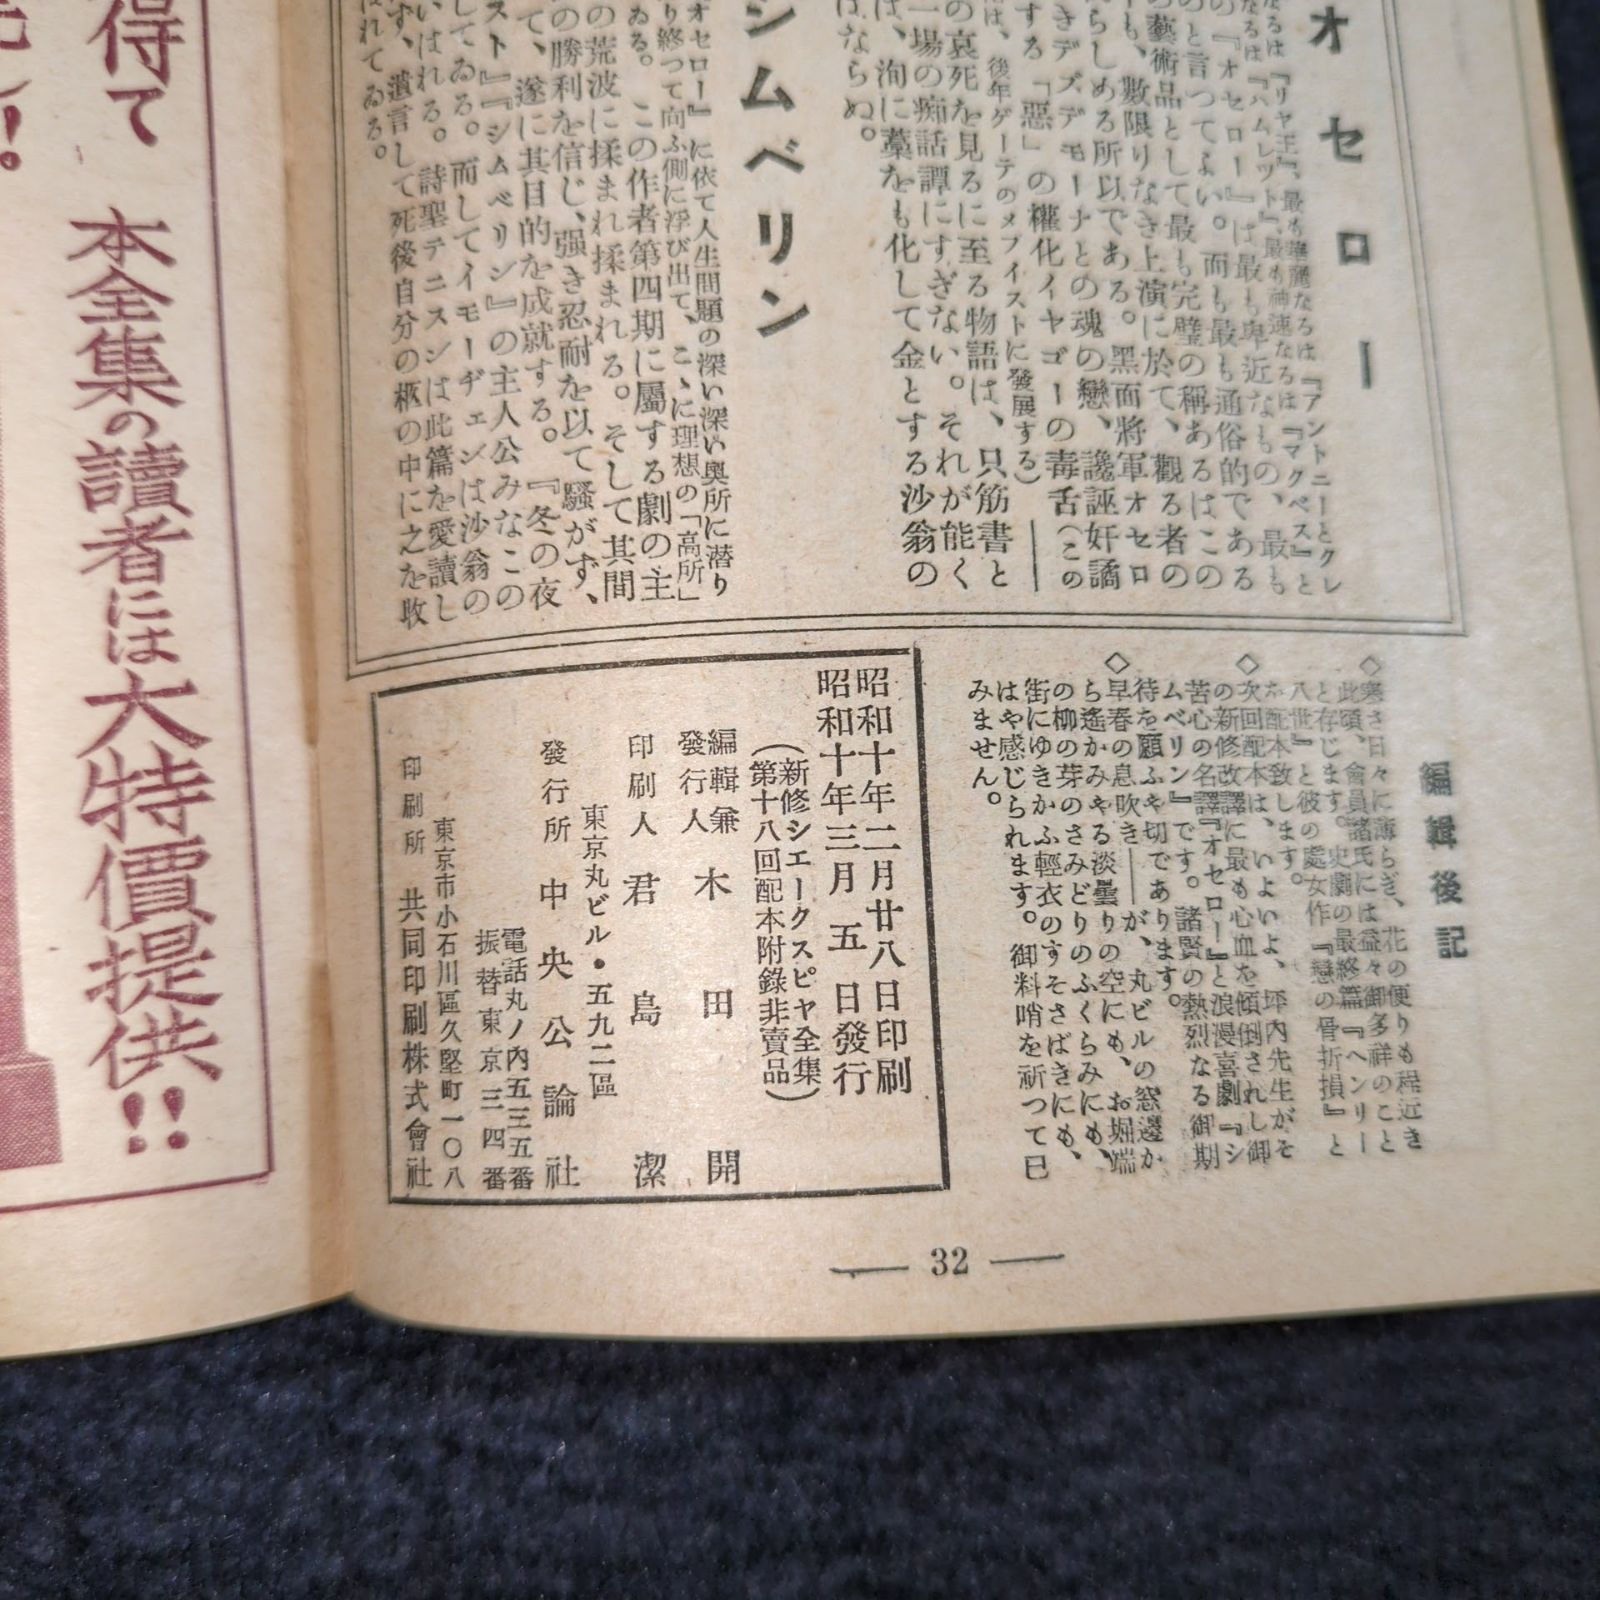 オセロー
なるは『リヤ王』、最も華麗なるは『アントニーとクレ
なるは『ハムレット』、最も神速なるは『マクベス』と
の『オセロー』は最も卑近なもの、最も
のと言つてよい。而も最も通俗的である
藝術品として最も完璧の稱あるはこの
も、數限りなき上演に於て、觀る者の
らしめる所以である。黑面將軍オセロ
きデズデモーナとの魂の戀、讒誣奸譎
する「惡」の權化イヤゴーの毒舌(この
は、後年ゲーテのメフィストに發展する)――
の哀死を見るに至る物語は、只筋書と
一場の痴話譚にすぎない。それが能く
は、洵に藁をも化して金とする沙翁の
はならぬ。
シムベリン
オセロー』に依て人生問題の深い深い奥所に潜り
り終つて向ふ側に浮び出て、こゝに理想の「高所」
ゐる。この作者第四期に屬する劇の主
の荒波に揉まれ揉まれる。そして其間
の勝利を信じ、强き忍耐を以て騒がず、
て、遂に其目的を成就する。『冬の夜
スト』『シムベリン』の主人公みなこの
してゐる。而してイモーヂェンは沙翁の
いはれる。詩聖テニスンは此篇を愛讀し
ず、遺言して死後自分の柩の中に之を收
ばれてゐる。
編輯後記
◇寒さ日々に薄らぎ、花の便りも程近き
此頃、會員諸氏には益々御多祥のこと
と存じます。史劇の最終篇『ヘンリー
八世』と彼の處女作『戀の骨折損』と
を配本致します。
◇次回配本は、いよいよ、坪内先生がそ
の新修改譯に最も心血を傾倒されし御
苦心の名譯『オセロー』と浪漫喜劇『シ
ムベリン』です。諸賢の熱烈なる御期
待を願ふや切であります。
◇早春の息吹き――が、丸ビルの窓邊か
ら遙かみやる淡曇りの空にも、お堀端
の柳の芽のさみどりのふくらみにも、
街にゆきかふ輕衣のすそさばきにも、
はや感じられます。御料哨を祈つて已
みません。
昭和十年二月廿八日印刷
昭和十年三月五日發行
(新修シエークスピヤ全集)
(第十八回配本附錄非賣品)
編輯兼
發行人 木田開
印刷人 君島潔
東京丸ビル・五九二區
發行所 中央公論社
電話丸ノ内五三五番
振替東京三四番
東京市小石川區久堅町一〇八
印刷所 共同印刷株式會社
— 32 —
得て 本全集の讀者には大特價提供!!